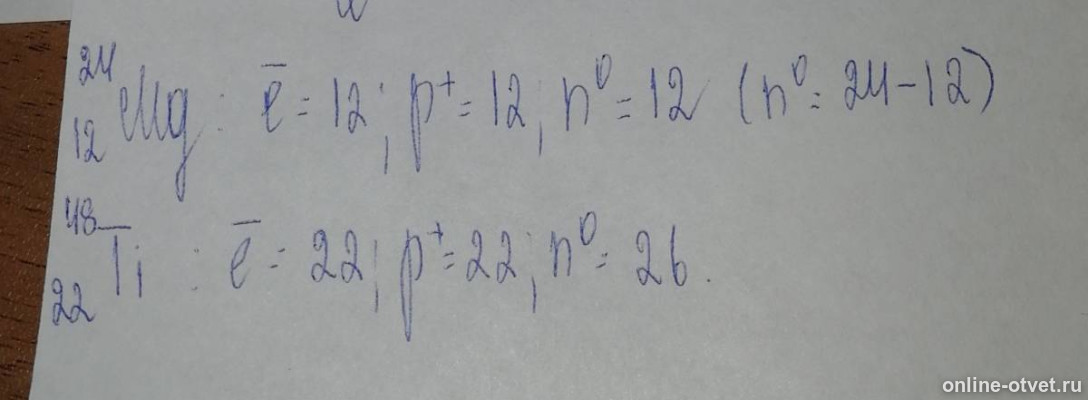 24
12 Mg : e̅ = 12; p⁺ = 12; n⁰ = 12 (n⁰ = 24 - 12)
48
22 Ti : e̅ = 22; p⁺ = 22; n⁰ = 26.
online-otvet.ru